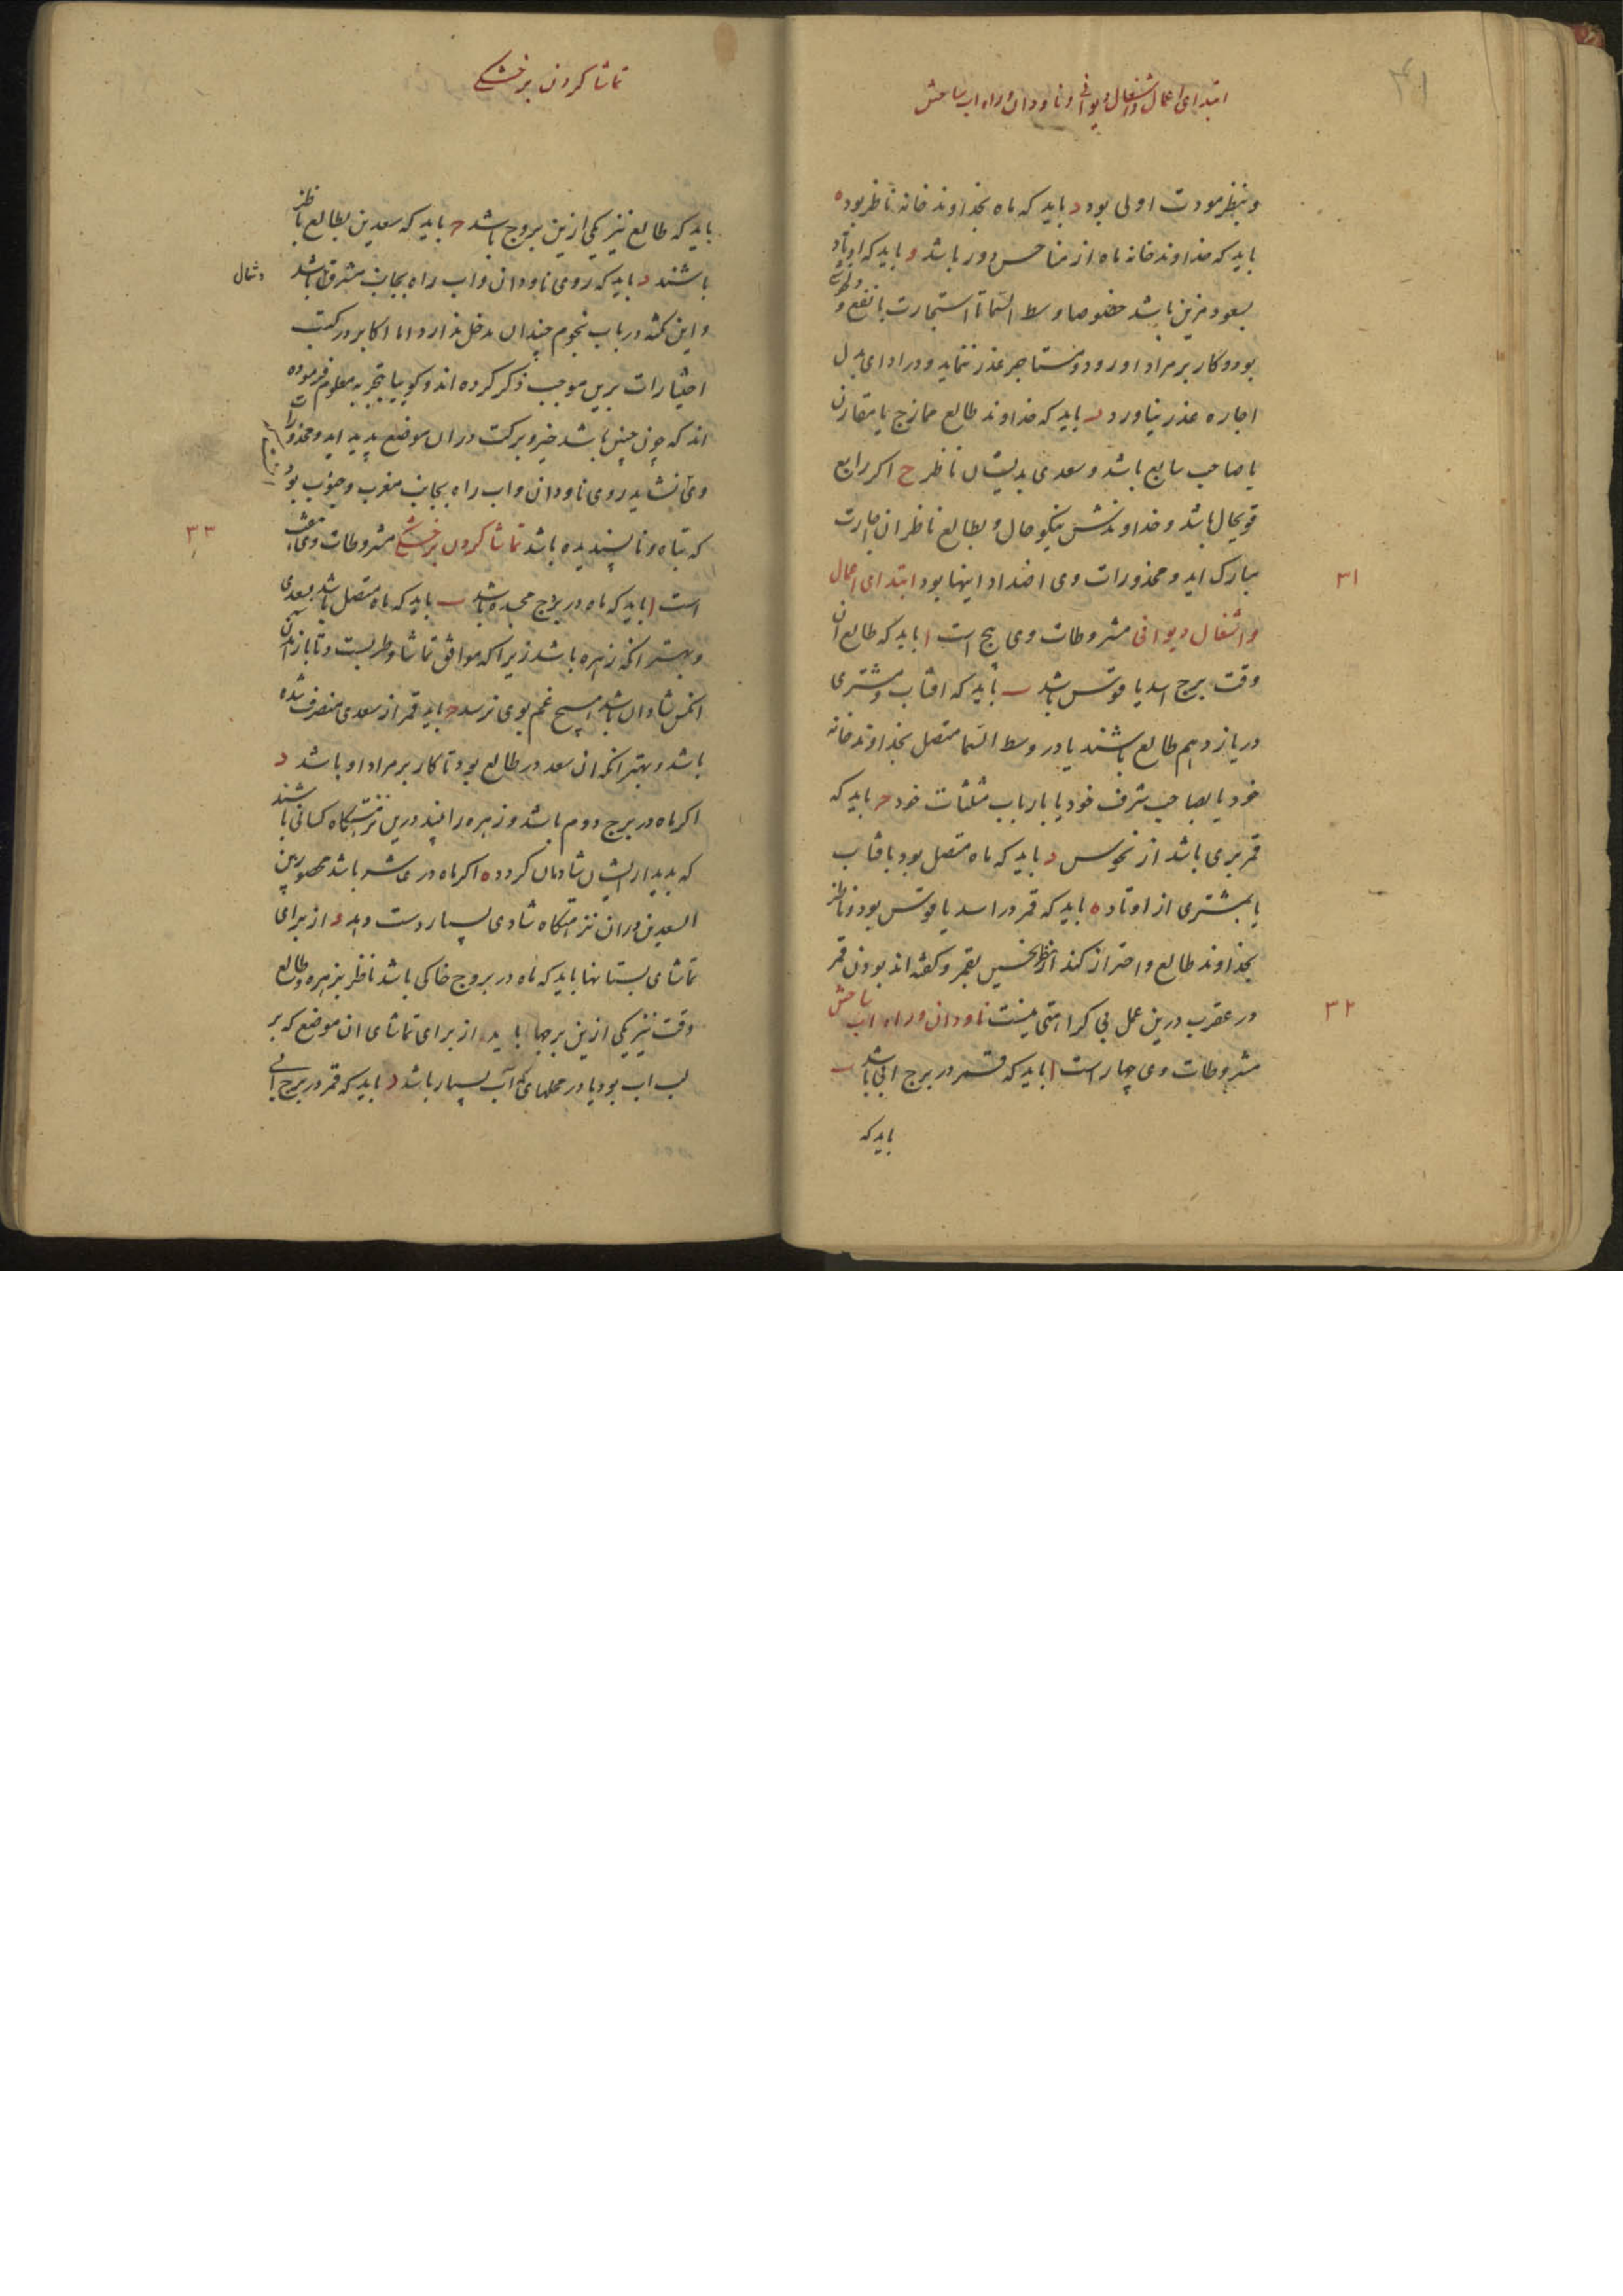 ۴۱
ابتدای اعمال و اشغال دیوانی و ناودان و راه اب ساختن
و بنظر مودت اولی بود د باید که ماه بخداوند خانه ناظر بود ه
باید که خداوند خانه ماه از مناحس دور باشد و باید که اوتاد
بسعود مزین باشد خصوصا وسط السما تا استجارت با نفع و
بود و کار بر مراد او رود و مستاجر عذر ننماید و در ادای بدل
اجاره عذر نیاورد ر باید که خداوند طالع ممازج یا مقارن
یا صاحب سابع باشد و سعدی بدیشان ناظر ح اکر رابع
قویحال باشد و خداوندش نیکو حال و بطالع ناظر ان اجارت
مبارک اید و محذورات وی اضداد اینها بود ابتدای اعمال
۳۱
و اشغال دیوانی مشروطات وی پنج است ا باید که طالع ان
وقت برج اسد یا قوس باشد ب باید که افتاب و مشتری
در یازدهم طالع باشند یا در وسط السما متصل بخداوند خانه
خود یا بصاحب شرف خود یا بارباب مثلثات خود ج باید که
قمر بری باشد از نحوس د باید که ماه متصل بود بافتاب
یا بمشتری از اوتاد ه باید که قمر در اسد یا قوس بود و ناظر
بخداوند طالع و احتراز کنند از نظر نحسین بقمر و کفته اند بودن قمر
در عقرب درین عمل بی کراهتی نیست ناودان و راه اب ساختن
۳۲
مشروطات وی چهار است ا باید که قمر در برج ابی باشد ب
باید که
تماشا کردن بر خشکی
باید که طالع نیز یکی ازین بروج باشد ج باید که سعدین بطالع ناظر
باشند د باید که روی ناودان و اب راه بجانب مشرق باشد و شمال
و این نکته در باب نجوم چندان مدخل ندارد اما اکابر در کتب
اختیارات برین موجب ذکر کرده اند و کوییا بتجربه معلوم فرموده
اند که چون چنین باشد خیر و برکت دران موضع پدید اید و محذورات
وی نشاید روی ناودان و اب راه بجانب مغرب و جنوب بود
که تباه و ناپسندیده باشد تماشا کردن بر خشکی مشروطات وی هشت
۳۳
است ا باید که ماه در برج مجسده باشد ب باید که ماه متصل باشد بسعدی
و بهتر انکه زهره باشد زیرا که موافق تماشا و طربست و تا باز امدن
انکس شادان باشد و هیچ غم بوی نرسد ج باید قمر از سعدی منصرف شده
باشد و بهتر انکه ان سعد در طالع بود تا کار بر مراد او باشد د
اکر ماه در برج دوم باشد و زهره را بیند درین نزهتکاه کسانی باشند
که بدیدار ایشان شادمان کردد ه اکر ماه در عاشر باشد محصور بین
السعدین دران نزهتکاه شادی بسیار دست دهد و از برای
تماشای بستانها باید که ماه در بروج خاکی باشد ناظر بزهره و طالع
وقت نیز یکی ازین برجها باید ر از برای تماشای ان موضع که بر
لب اب بود یا در محلهای که آب بسیار باشد د باید که قمر در برج ابی